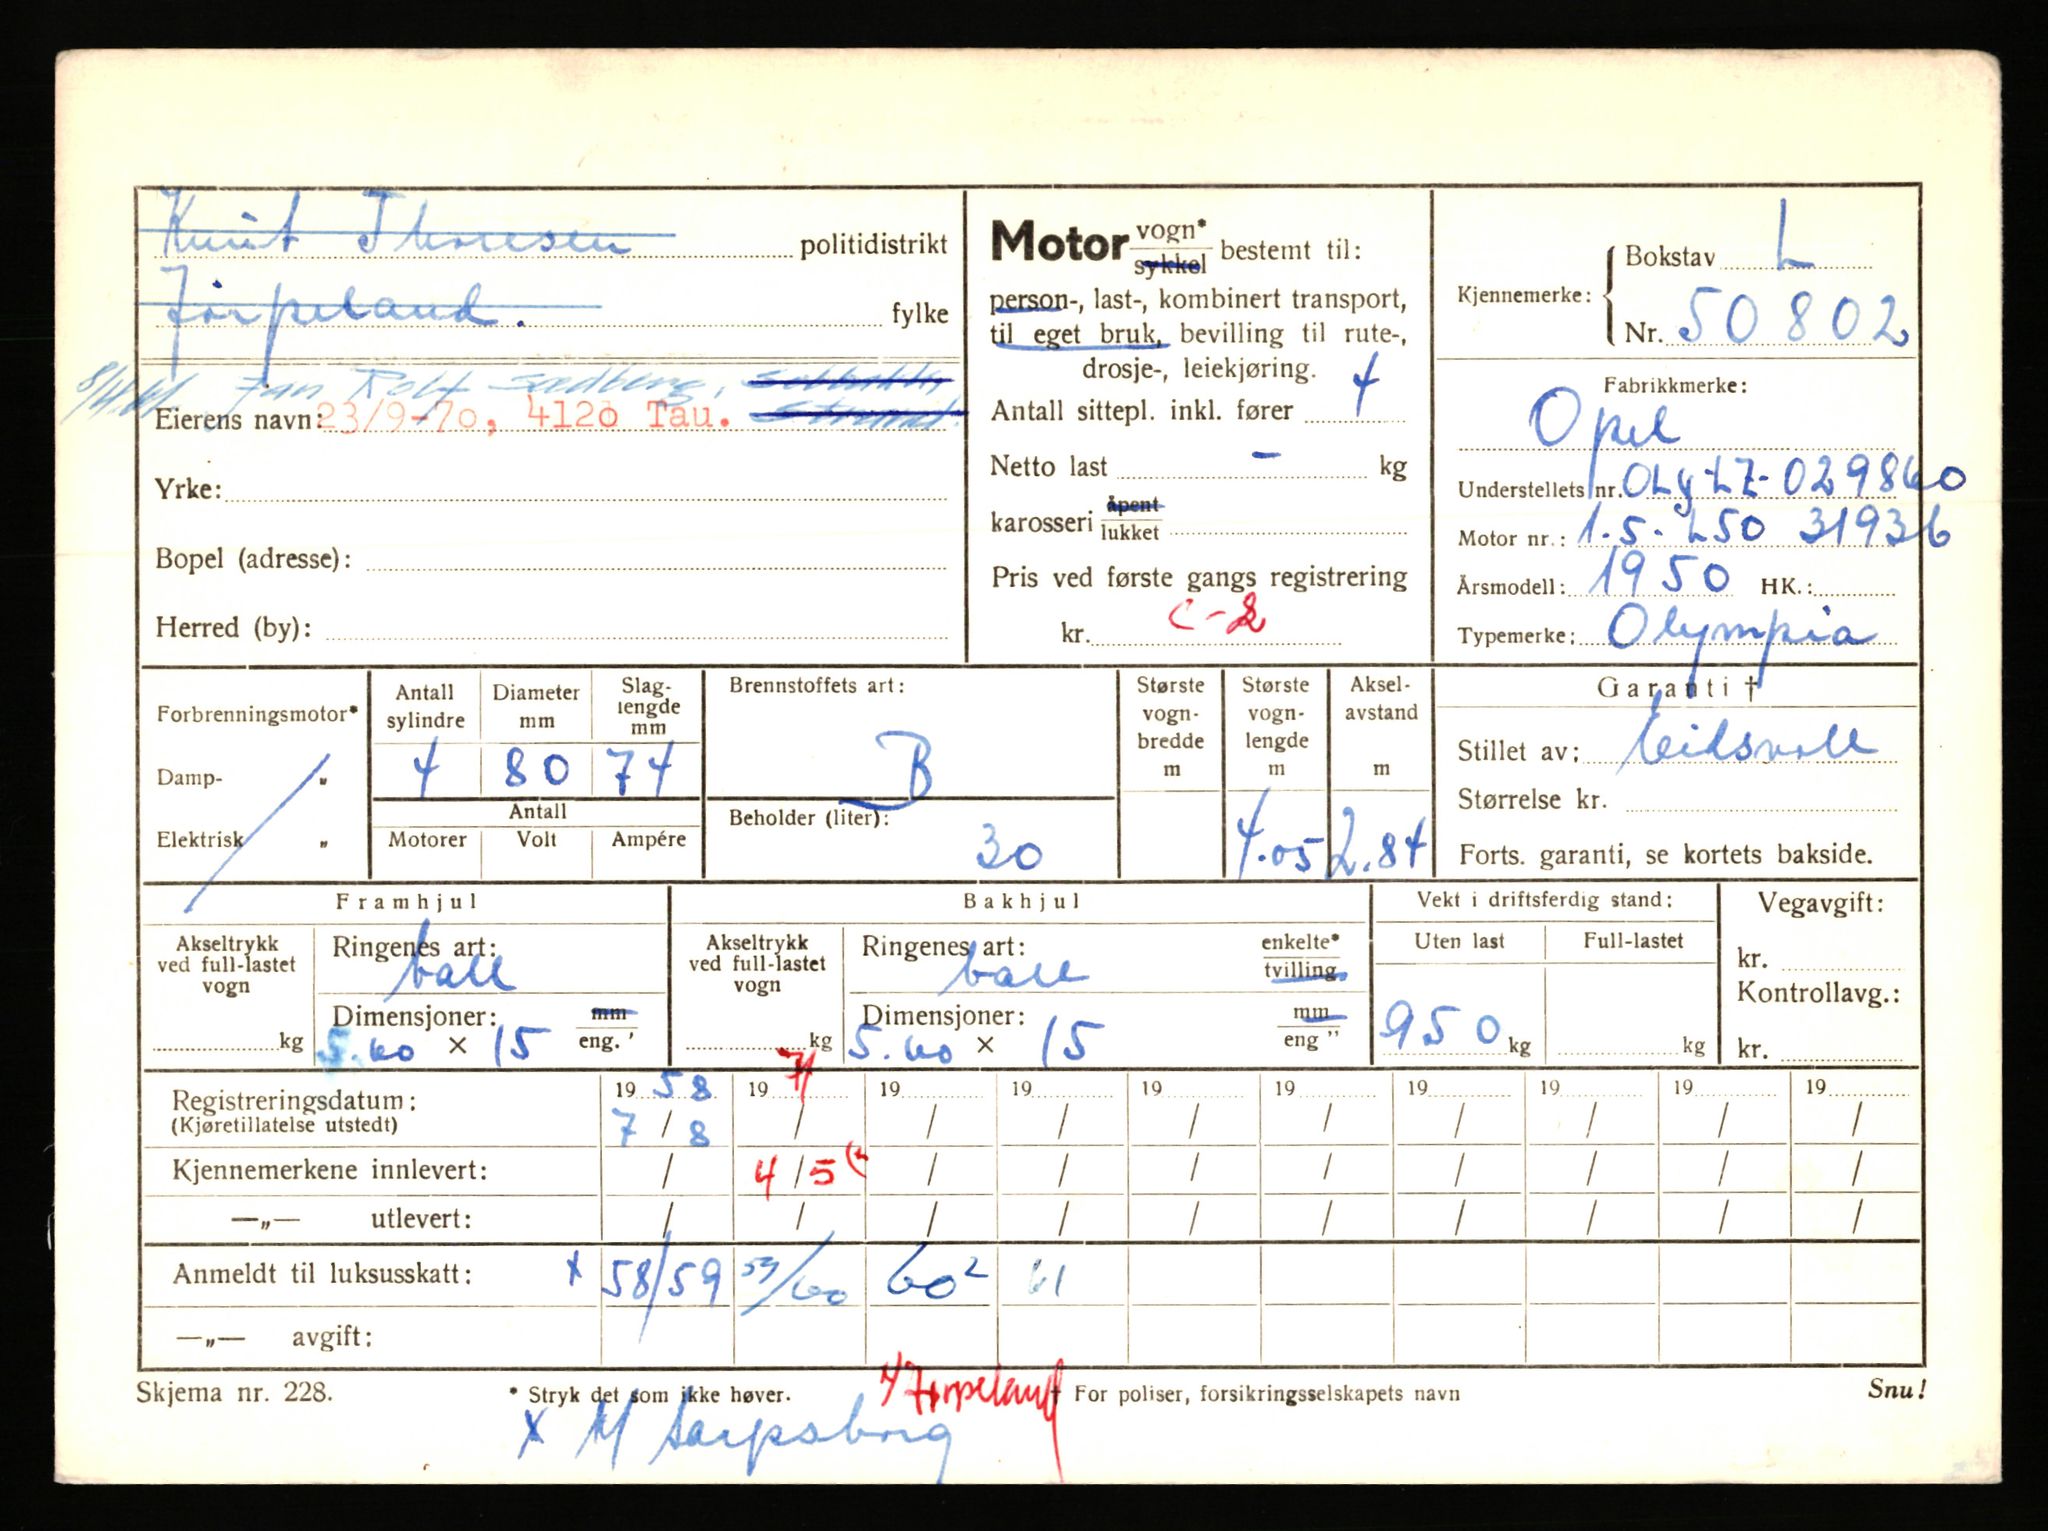 Knut Thoresen politidistrikt
Jørpeland. fylke
Jan Rolf
Eierens navn: 23/9-70, 4120 Tau. Strand.
Yrke:
Bopel (adresse):
Herred (by):
Motor vogn* sykkel bestemt til:
person-, last-, kombinert transport,
til eget bruk, bevilling til rute-,
drosje-, leiekjøring.
Antall sittepl. inkl. fører 4
Netto last - kg
karosseri åpent lukket
Pris ved første gangs registrering
kr. C-2
Kjennemerke: Bokstav L
Nr. 50802
Fabrikkmerke:
Opel
Understellets nr. OLy-LZ-029860
Motor nr.: 1.5-L50 31936
Årsmodell: 1950 HK.:
Typemerke: Olympia
Forbrenningsmotor*
Damp- „
Elektrisk „
Antall sylindre 4
Diameter mm 80
Slag-lengde mm 74
Antall
Motorer Volt Ampére
Brennstoffets art:
B
Beholder (liter):
30
Største vogn-bredde m
Største vogn-lengde m 4.05
Aksel-avstand m 2.84
Garanti †
Stillet av: Eidsvoll
Størrelse kr.
Forts. garanti, se kortets bakside.
Framhjul
Akseltrykk ved full-lastet vogn
kg
Ringenes art:
ball
Dimensjoner: mm
5.60 × 15 eng.'
Bakhjul
Akseltrykk ved full-lastet vogn
kg
Ringenes art: enkelte*
ball tvilling
Dimensjoner: mm
5.60 × 15 eng"
Vekt i driftsferdig stand:
Uten last Full-lastet
950 kg kg
Vegavgift:
kr.
Kontrollavg.:
kr.
19 58 19 71 19 19 19 19 19 19 19 19
Registreringsdatum:
(Kjøretillatelse utstedt) 7/8 / / / / / / / / /
Kjennemerkene innlevert: / 4/5 / / / / / / / /
—„— utlevert: / / / / / / / / / /
Anmeldt til luksusskatt: x 58/59 59/60 60² 61
—„— avgift:
Skjema nr. 228. * Stryk det som ikke høver. Jørpeland † For poliser, forsikringsselskapets navn Snu!
x M Sarpsborg